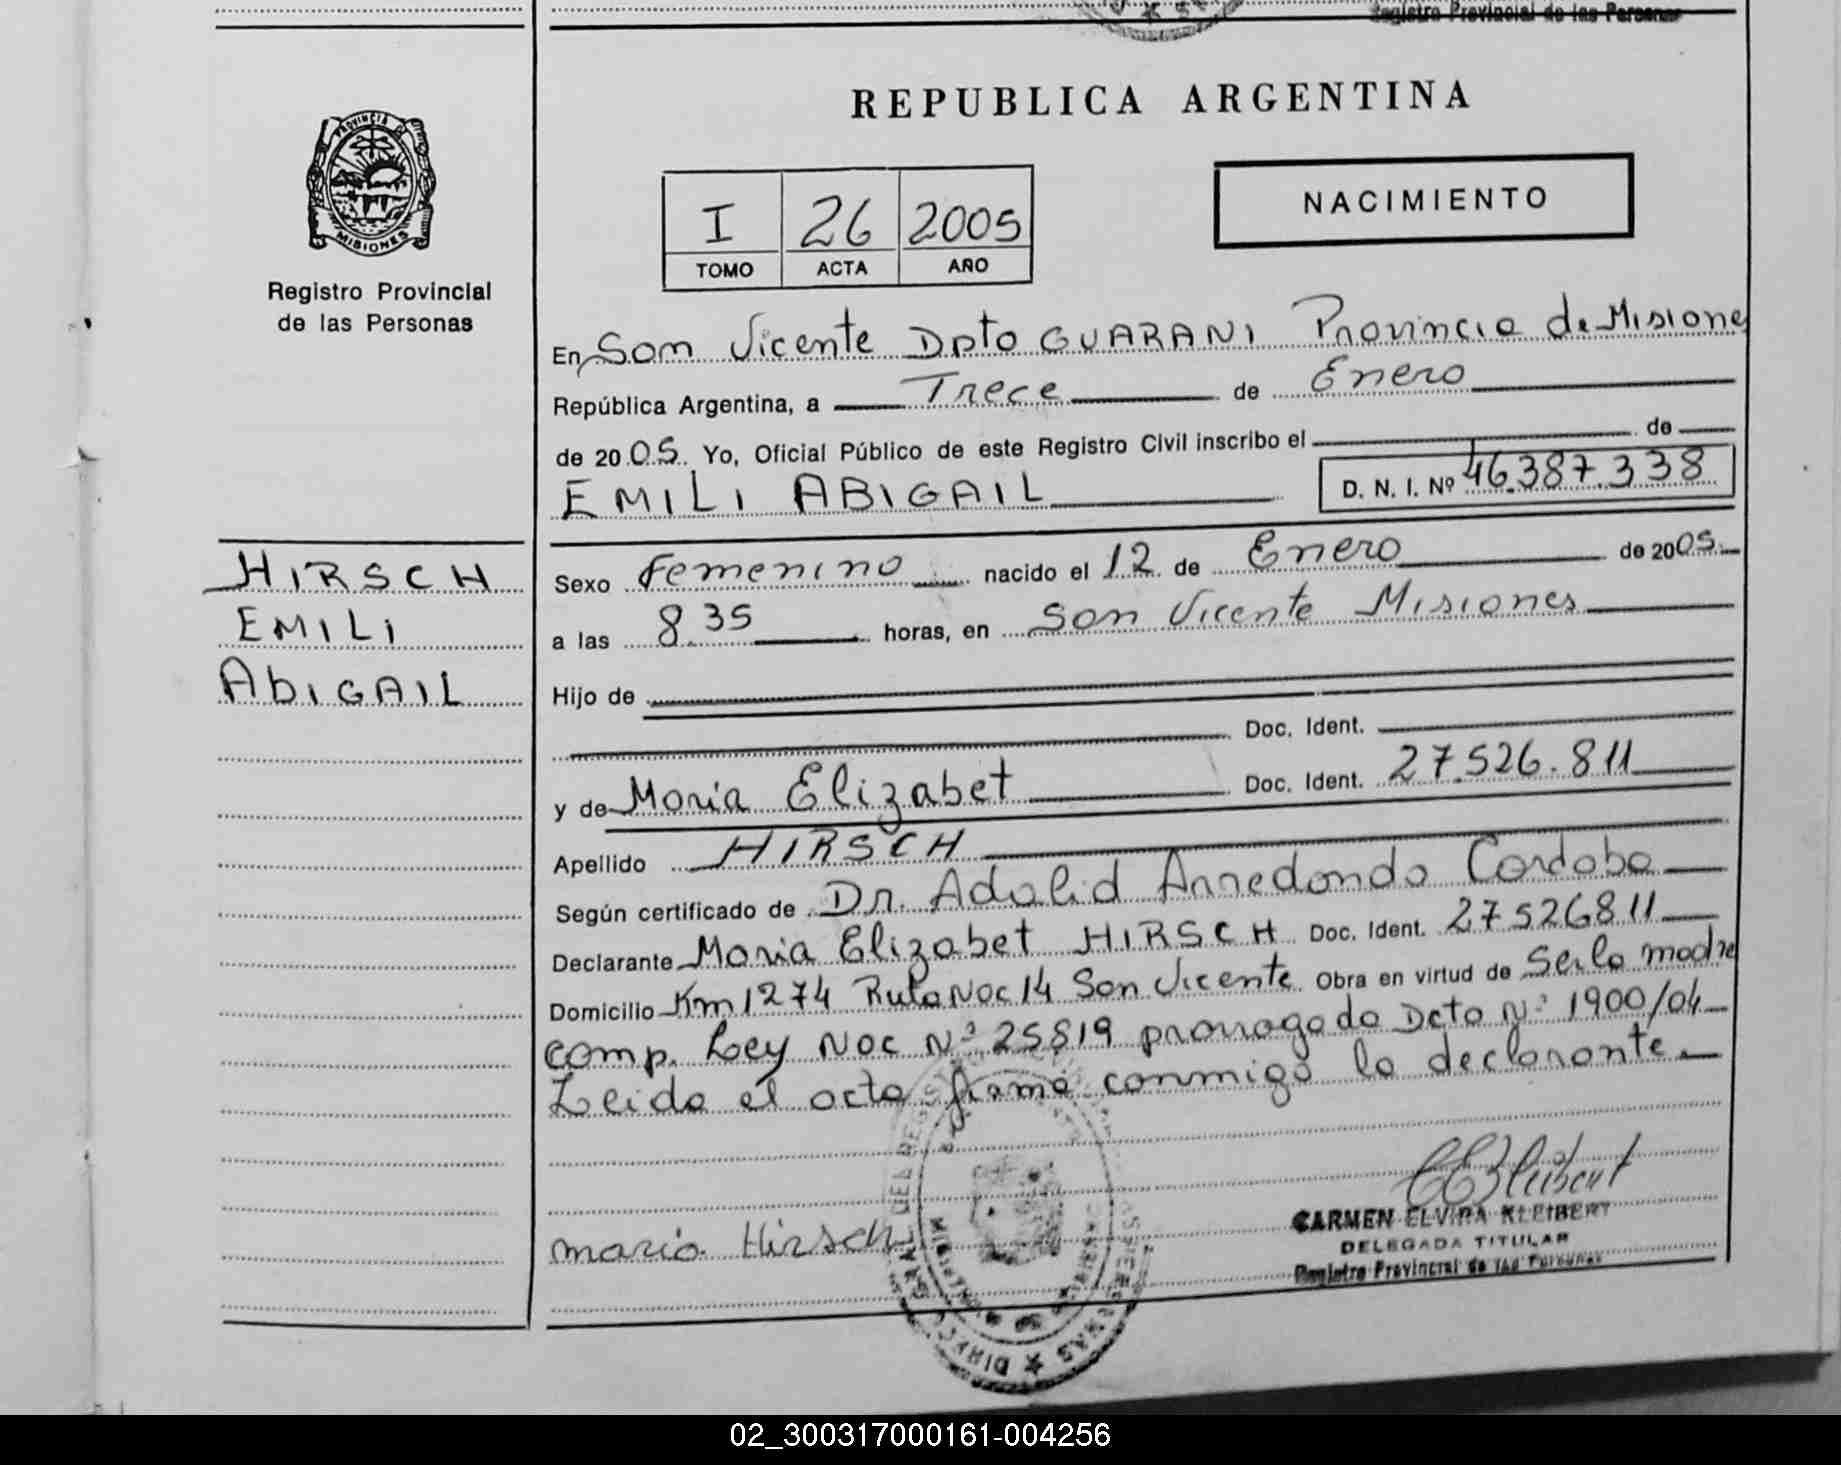 Registro Provincial de las Personas
REPUBLICA ARGENTINA
PROVINCIA DE
MISIONES
Registro Provincial
de las Personas
I 26 2005
TOMO ACTA AÑO
NACIMIENTO
En San Vicente Dpto GUARANI Provincia de Misiones
República Argentina, a Trece de Enero
de 2005. Yo, Oficial Público de este Registro Civil inscribo el de
EMILI ABIGAIL D. N. I. Nº 46.387.338
HIRSCH
EMILI
ABIGAIL
Sexo Femenino nacido el 12 de Enero de 2005.
a las 8.35 horas, en San Vicente Misiones
Hijo de
Doc. Ident.
y de Maria Elizabet Doc. Ident. 27.526.811
Apellido HIRSCH
Según certificado de Dr. Adalid Arredondo Cordoba
Declarante Maria Elizabet HIRSCH Doc. Ident. 27526811
Domicilio Km 1274 Ruta Nac 14 San Vicente. Obra en virtud de Ser la madre
comp. Ley Nac Nº 25819 prorrogado Dcto Nº 1900/04
Leida el acta firma conmigo la declarante.
maria Hirsch
CARMEN ELVIRA KLEIBERT
DELEGADA TITULAR
Registro Provincial de las Personas
02_300317000161-004256